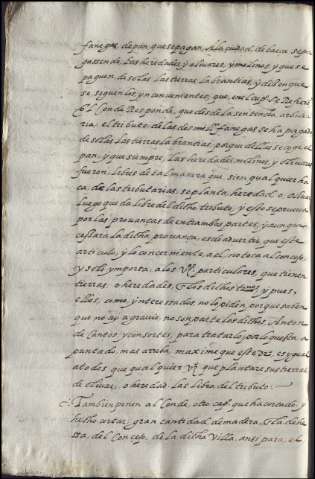 fanegas de pan, que se pagan, A la ciudad de baeça se pa
gassen de las heredades, y oliuares, y molinos, y que se
paguen de solas las tierras labrantias, y dizen que
se siguen los ynconuenientes, que, en el cap.
El Conde Responde, que desde la sentencia arbitra
ria. el tributo de las dos mill fanegas se ha pagado
de solas las tierras labrantias porque dellas se coxe el
pan, y que siempre, las heredades molinos, y oliuares
fueron, libres de tal manera que, si en qualquier haça
de las tributarias, se planta heredad, o, oliuar
luego queda libre del dicho tributo, y esto se prueua
por las prouanças de entrambas partes, y aunque
cessara la dicha, prouança, es de aduertir que este
articulo, y lo concerniente a el, no toca al concejo,
y solo ymporta, a los v.os particulares, que tienen
tierras o heredades, y pues,
ellos, como, ynteresados no lo piden, porque saben
que no ay agrauio, no son parte los dichos, Anton
de Cantos y consortes, para tratarlo, por lo questa a
puntado mas arriba, maxime que es ygual
a todos que qualquier v.o que plantare sus tierras
de oliuar, o heredad, las libra del tributo.
Tambien ponen al Conde, otro cap. que ha cortado, y
hecho cortar, gran cantidad, de madera, de la dehe
sa, del Concejo, de la dicha Villa, ansi para, el